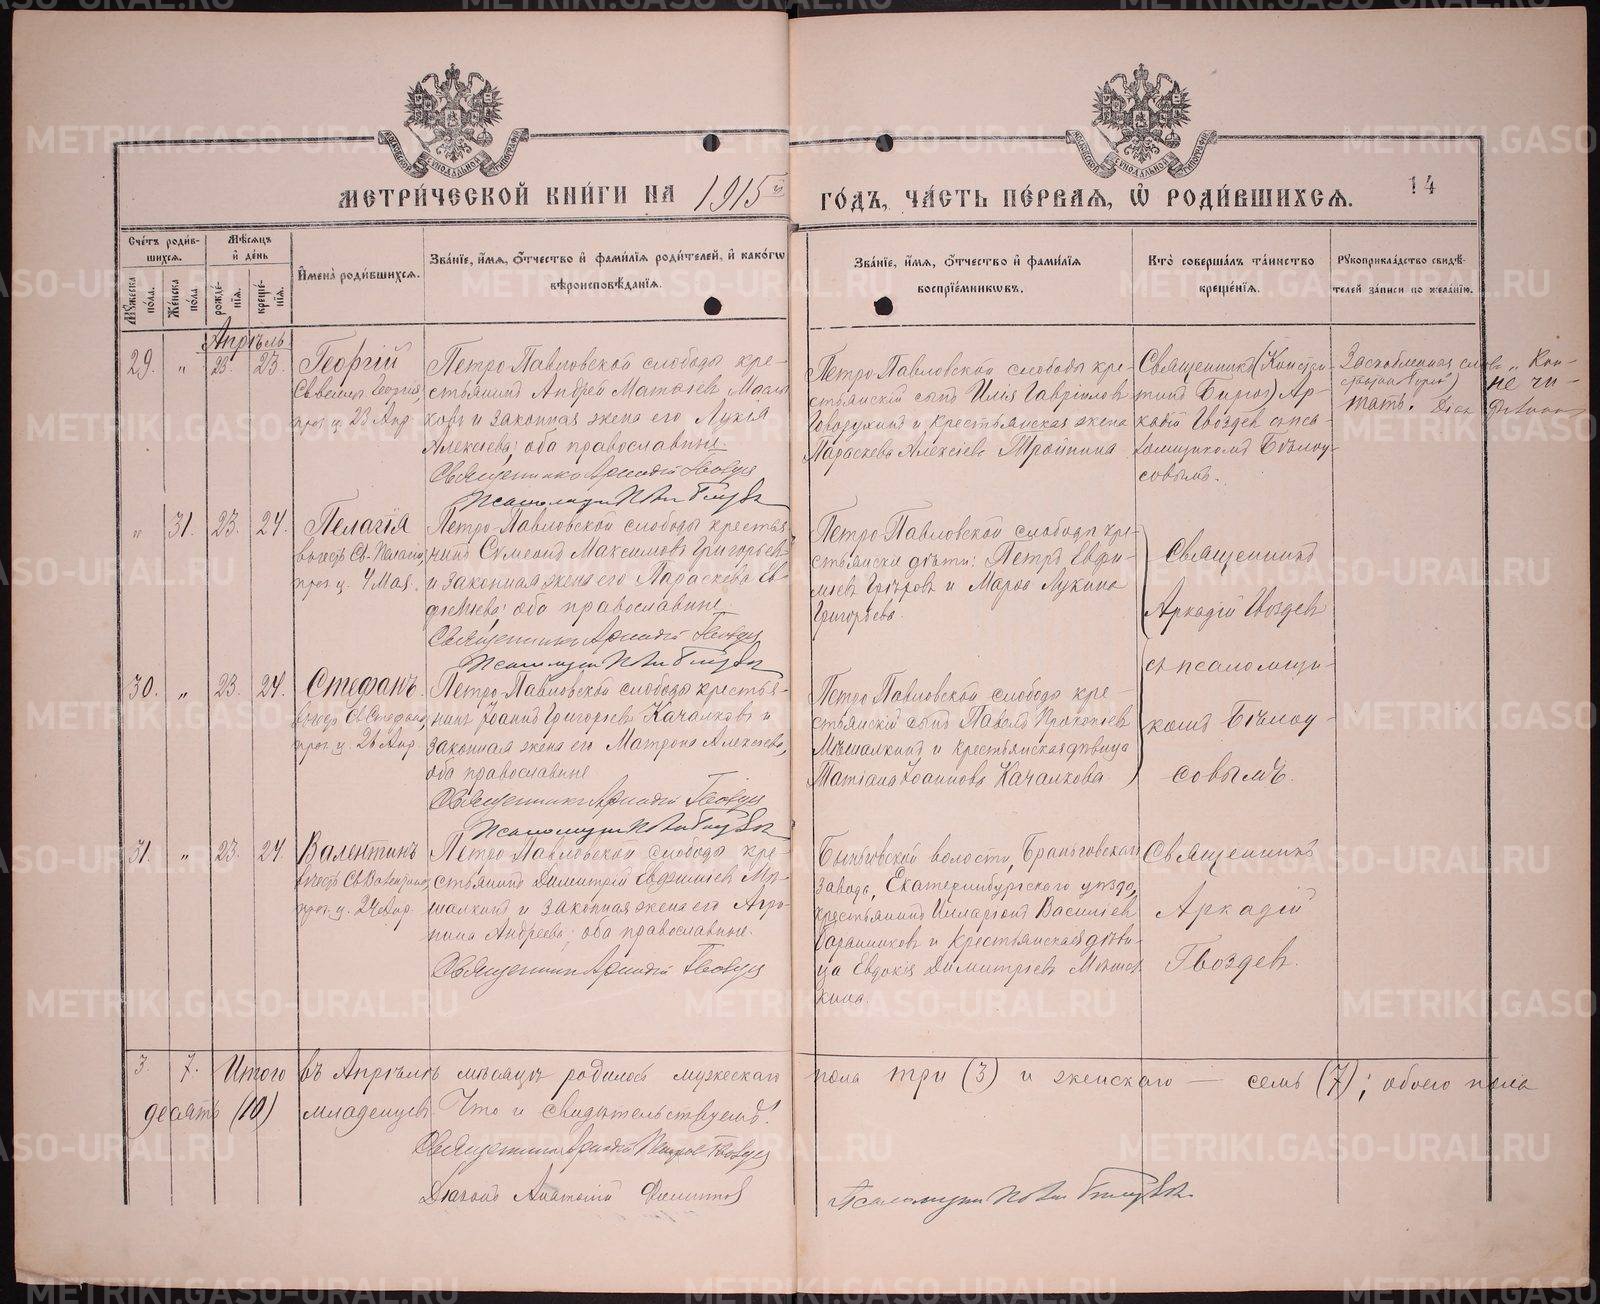 МЕТРИ́ЧЕСКОЙ КНИ́ГИ НА 1915й ГО́ДЪ, ЧА́СТЬ ПЕ́РВАЯ, Ѽ РОДИ́ВШИХСЯ.
14
Сче́тъ роди́вшихся.
Му́жеска по́ла.
Же́нска по́ла
Мѣ́сяцъ и де́нь
рожде́нія.
креще́нія.
И҆мена̀ роди́вшихся.
Зва́нїе, и҆́мя, ѻ҆́тчество и҆ фами́лїя роди́телей, и҆ како́гѡ вѣроисповѣ́данїя.
Зва́нїе, и҆́мя, ѻ҆́тчество и҆ фами́лїя воспрїе́мникѡвъ.
Кто̀ соверша́лъ та́инство креще́нїя.
Рукоприкла́дство свидѣ́телей за́писи по жела́нїю.
Апрѣль
29. " 23. 23.
Георгій
праз. ц. 23 Апр.
Петро-Павловской слободы кре-
стьянинъ Андрей Матѳіевъ
и законная жена его Лукія
Алексіева; оба православные.
Священникъ Аркадій Гвоздевъ
Петро-Павловской слободы кре-
стьянскій сынъ Илія Гавріиловъ
и крестьянская жена
Параскева Алексіева
Священникъ (Конста-
нтинъ Бирюг) Ар-
кадій Гвоздевъ съ пса-
ломщикомъ Бѣлоу-
совымъ.
не чи-
тать.
" 31. 23. 24.
Пелагія
праз. ц. 4 Мая.
Петро-Павловской слободы крестья-
нинъ Сѵмеонъ Максимовъ Григорьевъ
и законная жена его Параскева Ев-
оба православные.
Священникъ Аркадій Гвоздевъ
Петро-Павловской слободы кре-
стьянскіе дѣти: Петръ Евфи-
міевъ и Марѳа Лукина
Григорьева.
Священникъ
Аркадій Гвоздевъ
съ псаломщи-
комъ Бѣлоу-
совымъ.
30. " 23. 24.
Стефанъ.
въ честь Св. Стефана,
праз. ц. 26 Апр.
Петро-Павловской слободы крестья-
нинъ Іоаннъ Григорьевъ Качалковъ и
законная жена его Матрона Алексіева,
оба православные
Священникъ Аркадій Гвоздевъ
Петро-Павловской слободы кре-
стьянскій сынъ Павелъ Прокопіевъ
Мѣшалкинъ и крестьянская дѣвица
Татіана Іоаннова Качалкова.
31. " 23. 24.
Валентинъ
въ честь Св. Валентина,
праз. ц. 24 Апр.
Петро-Павловской слободы кре-
стьянинъ Димитрій Евфиміевъ Мѣ-
шалкинъ и законная жена его Агри-
пина Андреева; оба православные.
Священникъ Аркадій Гвоздевъ
Быньговской волости,
завода, Екатеринбургскаго уѣзда,
крестьянинъ Илларіонъ Василіевъ
и крестьянская дѣви-
ца Евдокія Димитріева Мѣшал-
кина.
Священникъ
Аркадій
Гвоздевъ.
3. 7. Итого въ Апрѣлѣ мѣсяцѣ родилось мужескаго пола три (3) и женскаго — семь (7); обоего пола
десять (10) младенцевъ. Что и свидѣтельствуемъ:
Священникъ Аркадій Гвоздевъ
Діаконъ Анатолій Филиппов